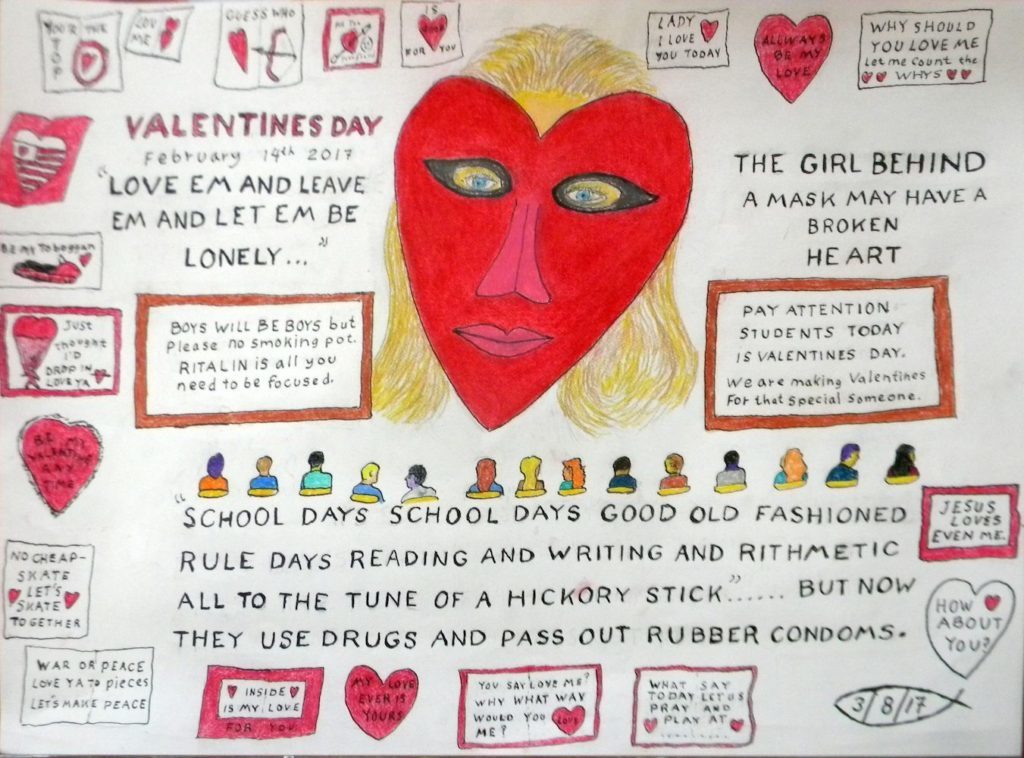 YOU'RE THE
TOP
LOVE
ME
GUESS WHO
IS
FOR YOU
LADY
I LOVE
YOU TODAY
ALLWAYS
BE MY
LOVE
WHY SHOULD
YOU LOVE ME
Let me count the
WHYS
VALENTINES DAY
February 14th 2017
"LOVE EM AND LEAVE
EM AND LET EM BE
LONELY..."
THE GIRL BEHIND
A MASK MAY HAVE A
BROKEN
HEART
BE MY Toboggan
Just
thought
I'D
DROP IN
LOVE YA
BOYS WILL BE BOYS but
Please no smoking pot.
RITALIN is all you
need to be focused.
PAY ATTENTION
STUDENTS TODAY
IS VALENTINES DAY.
We are making Valentines
For that special someone.
BE MY
VALENTINE
ANY
TIME
"SCHOOL DAYS SCHOOL DAYS GOOD OLD FASHIONED
RULE DAYS READING AND WRITING AND RITHMETIC
ALL TO THE TUNE OF A HICKORY STICK"...... BUT NOW
THEY USE DRUGS AND PASS OUT RUBBER CONDOMS.
JESUS
LOVES
EVEN ME.
NO CHEAP-
SKATE
LET'S
SKATE
TOGETHER
HOW
ABOUT
YOU?
WAR OR PEACE
LOVE YA TO pieces
LET'S MAKE PEACE
INSIDE
IS MY LOVE
FOR YOU
MY LOVE
EVER IS
YOURS
YOU SAY LOVE ME?
WHY WHAT WAY
WOULD YOU
ME?
LOVE
WHAT SAY
TODAY LET US
PRAY AND
PLAY AT
3/8/17